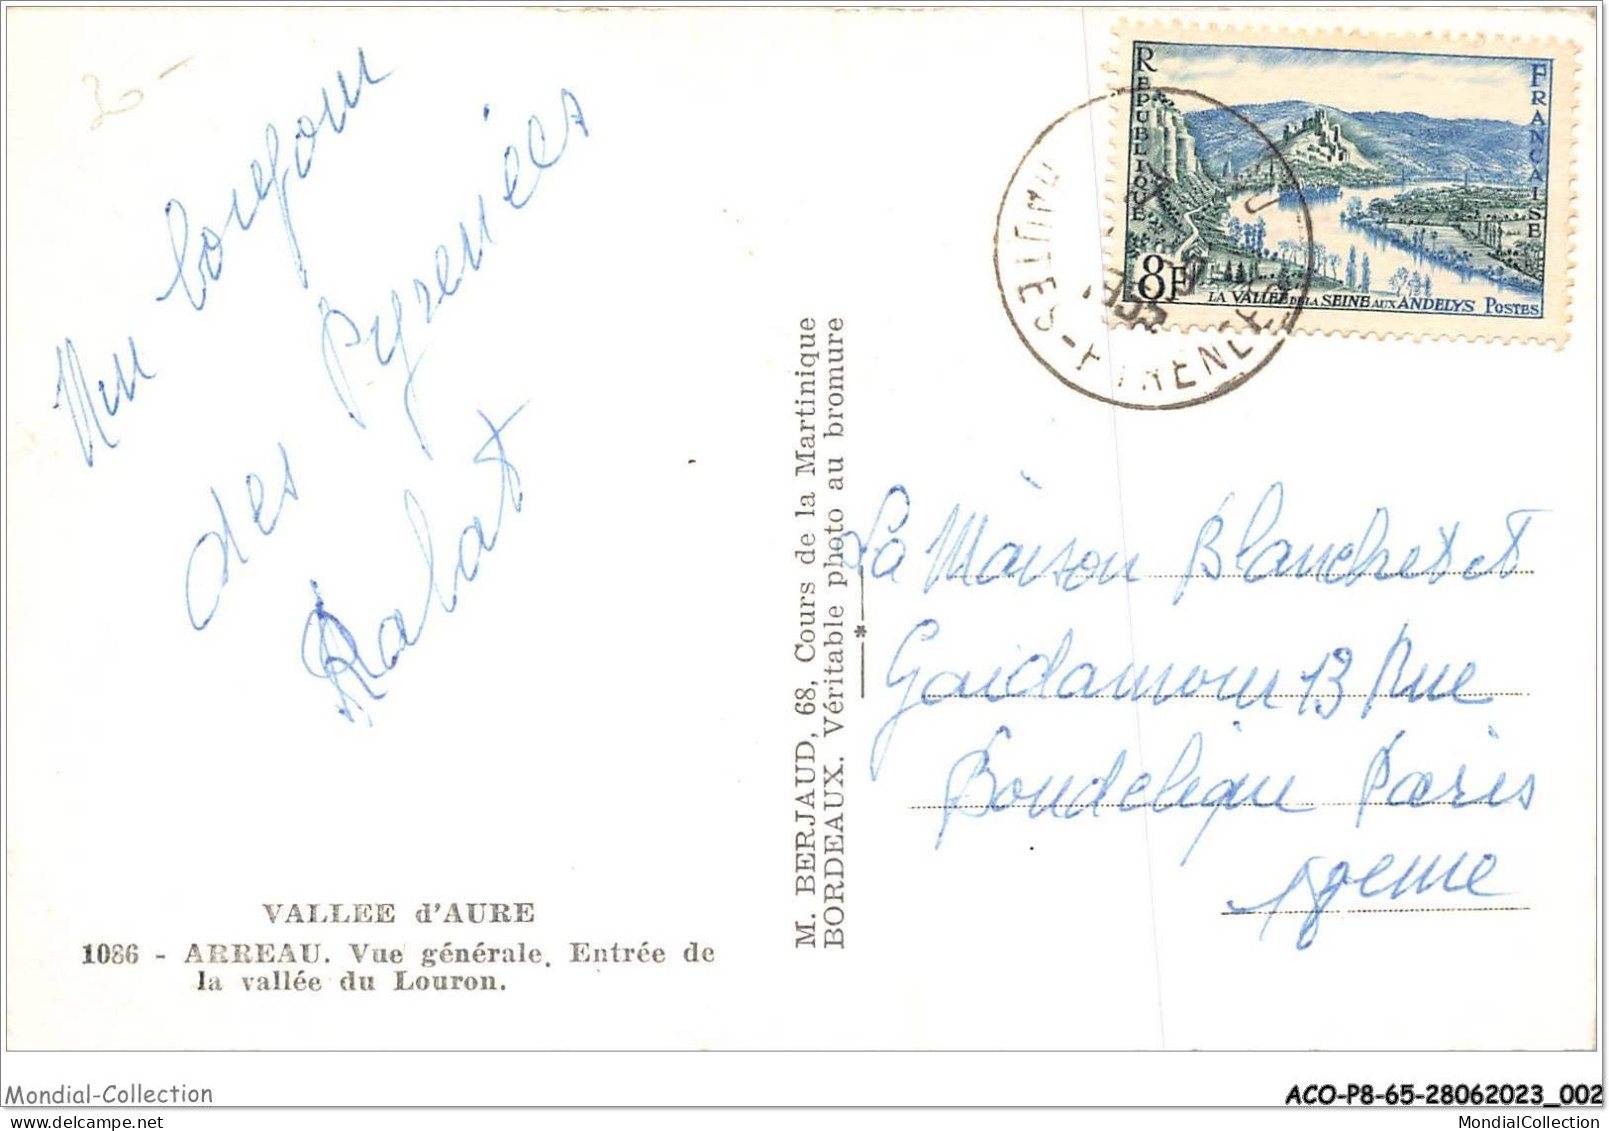 20-
Mes bonjour
des Pyrenées
Rabat
VALLEE d'AURE
1086 - ARREAU. Vue générale. Entrée de
la vallée du Louron.
M. BERJAUD, 68, Cours de la Martinique
BORDEAUX. Véritable photo au bromure
REPUBLIQUE FRANCAISE
8F
LA VALLEE DE LA SEINE AUX ANDELYS POSTES
HAUTES-PYRENEES
La Maison Blanchet et
13 Rue
Paris
Mondial-Collection
ACO-P8-65-28062023_002
MondialCollection